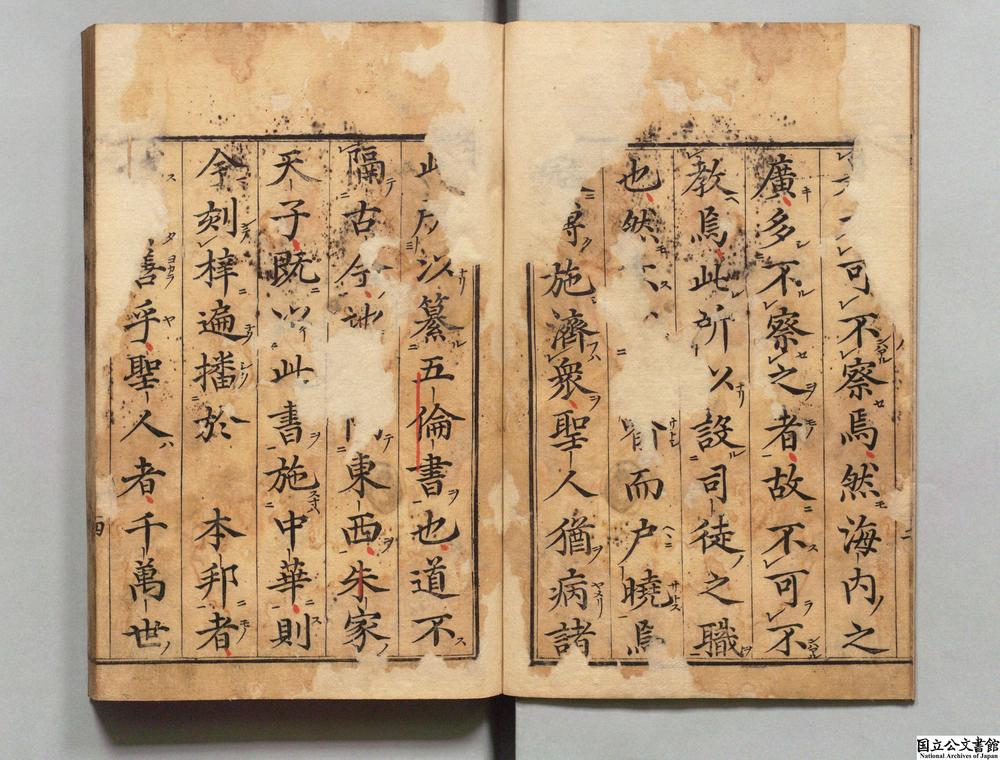 可不察焉然海内之
廣多不察之者故不可不
教焉此所以設司徒之職
也然 而戸曉焉
博施濟衆聖人猶病諸
此 以纂五倫書也道不
隔古今 東西朱家
天子既以此書施中華則
今刻梓遍播於 本邦者
善乎聖人者千萬世
二
四
国立公文書館
National Archives of Japan